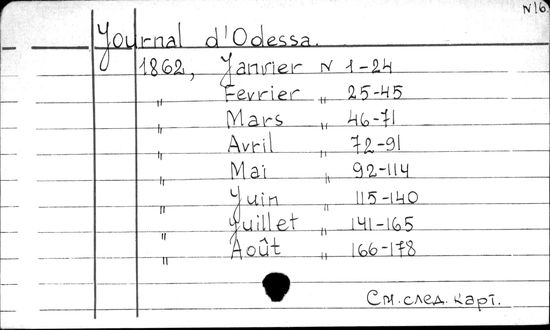 N16.
Journal d'Odessa.
1862, Janvier N 1-24
" Fevrier " 25-45
" Mars " 46-71
" Avril " 72-91
" Mai " 92-114
" Juin " 115-140
" Juillet " 141-165
" Août " 166-178
См. след. карт.